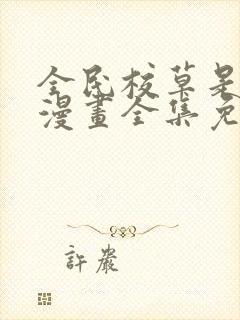 全民校草是
漫畫全集免
許嚴